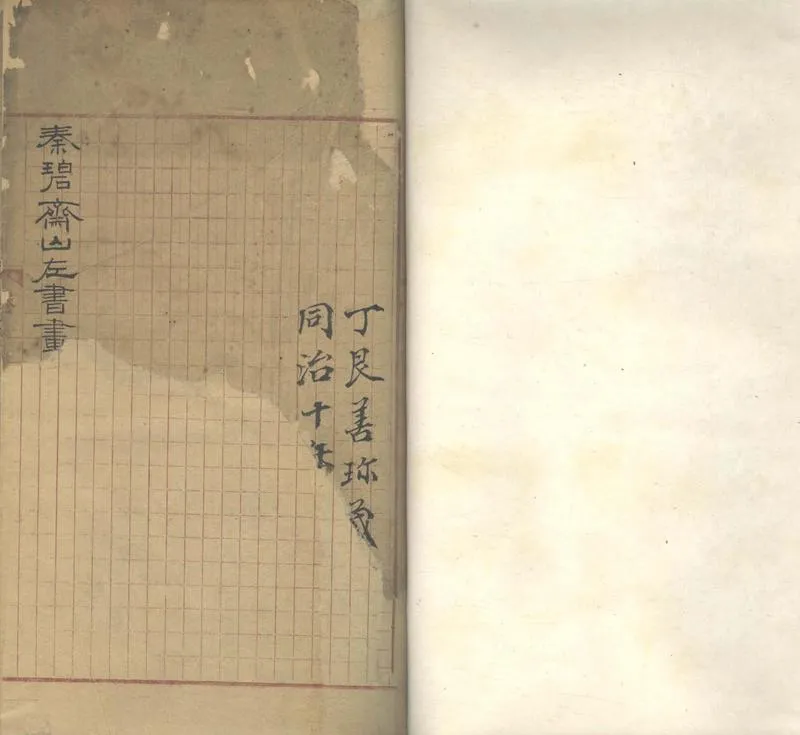 丁艮善珎
同治十年
秦碧齋山左書畫